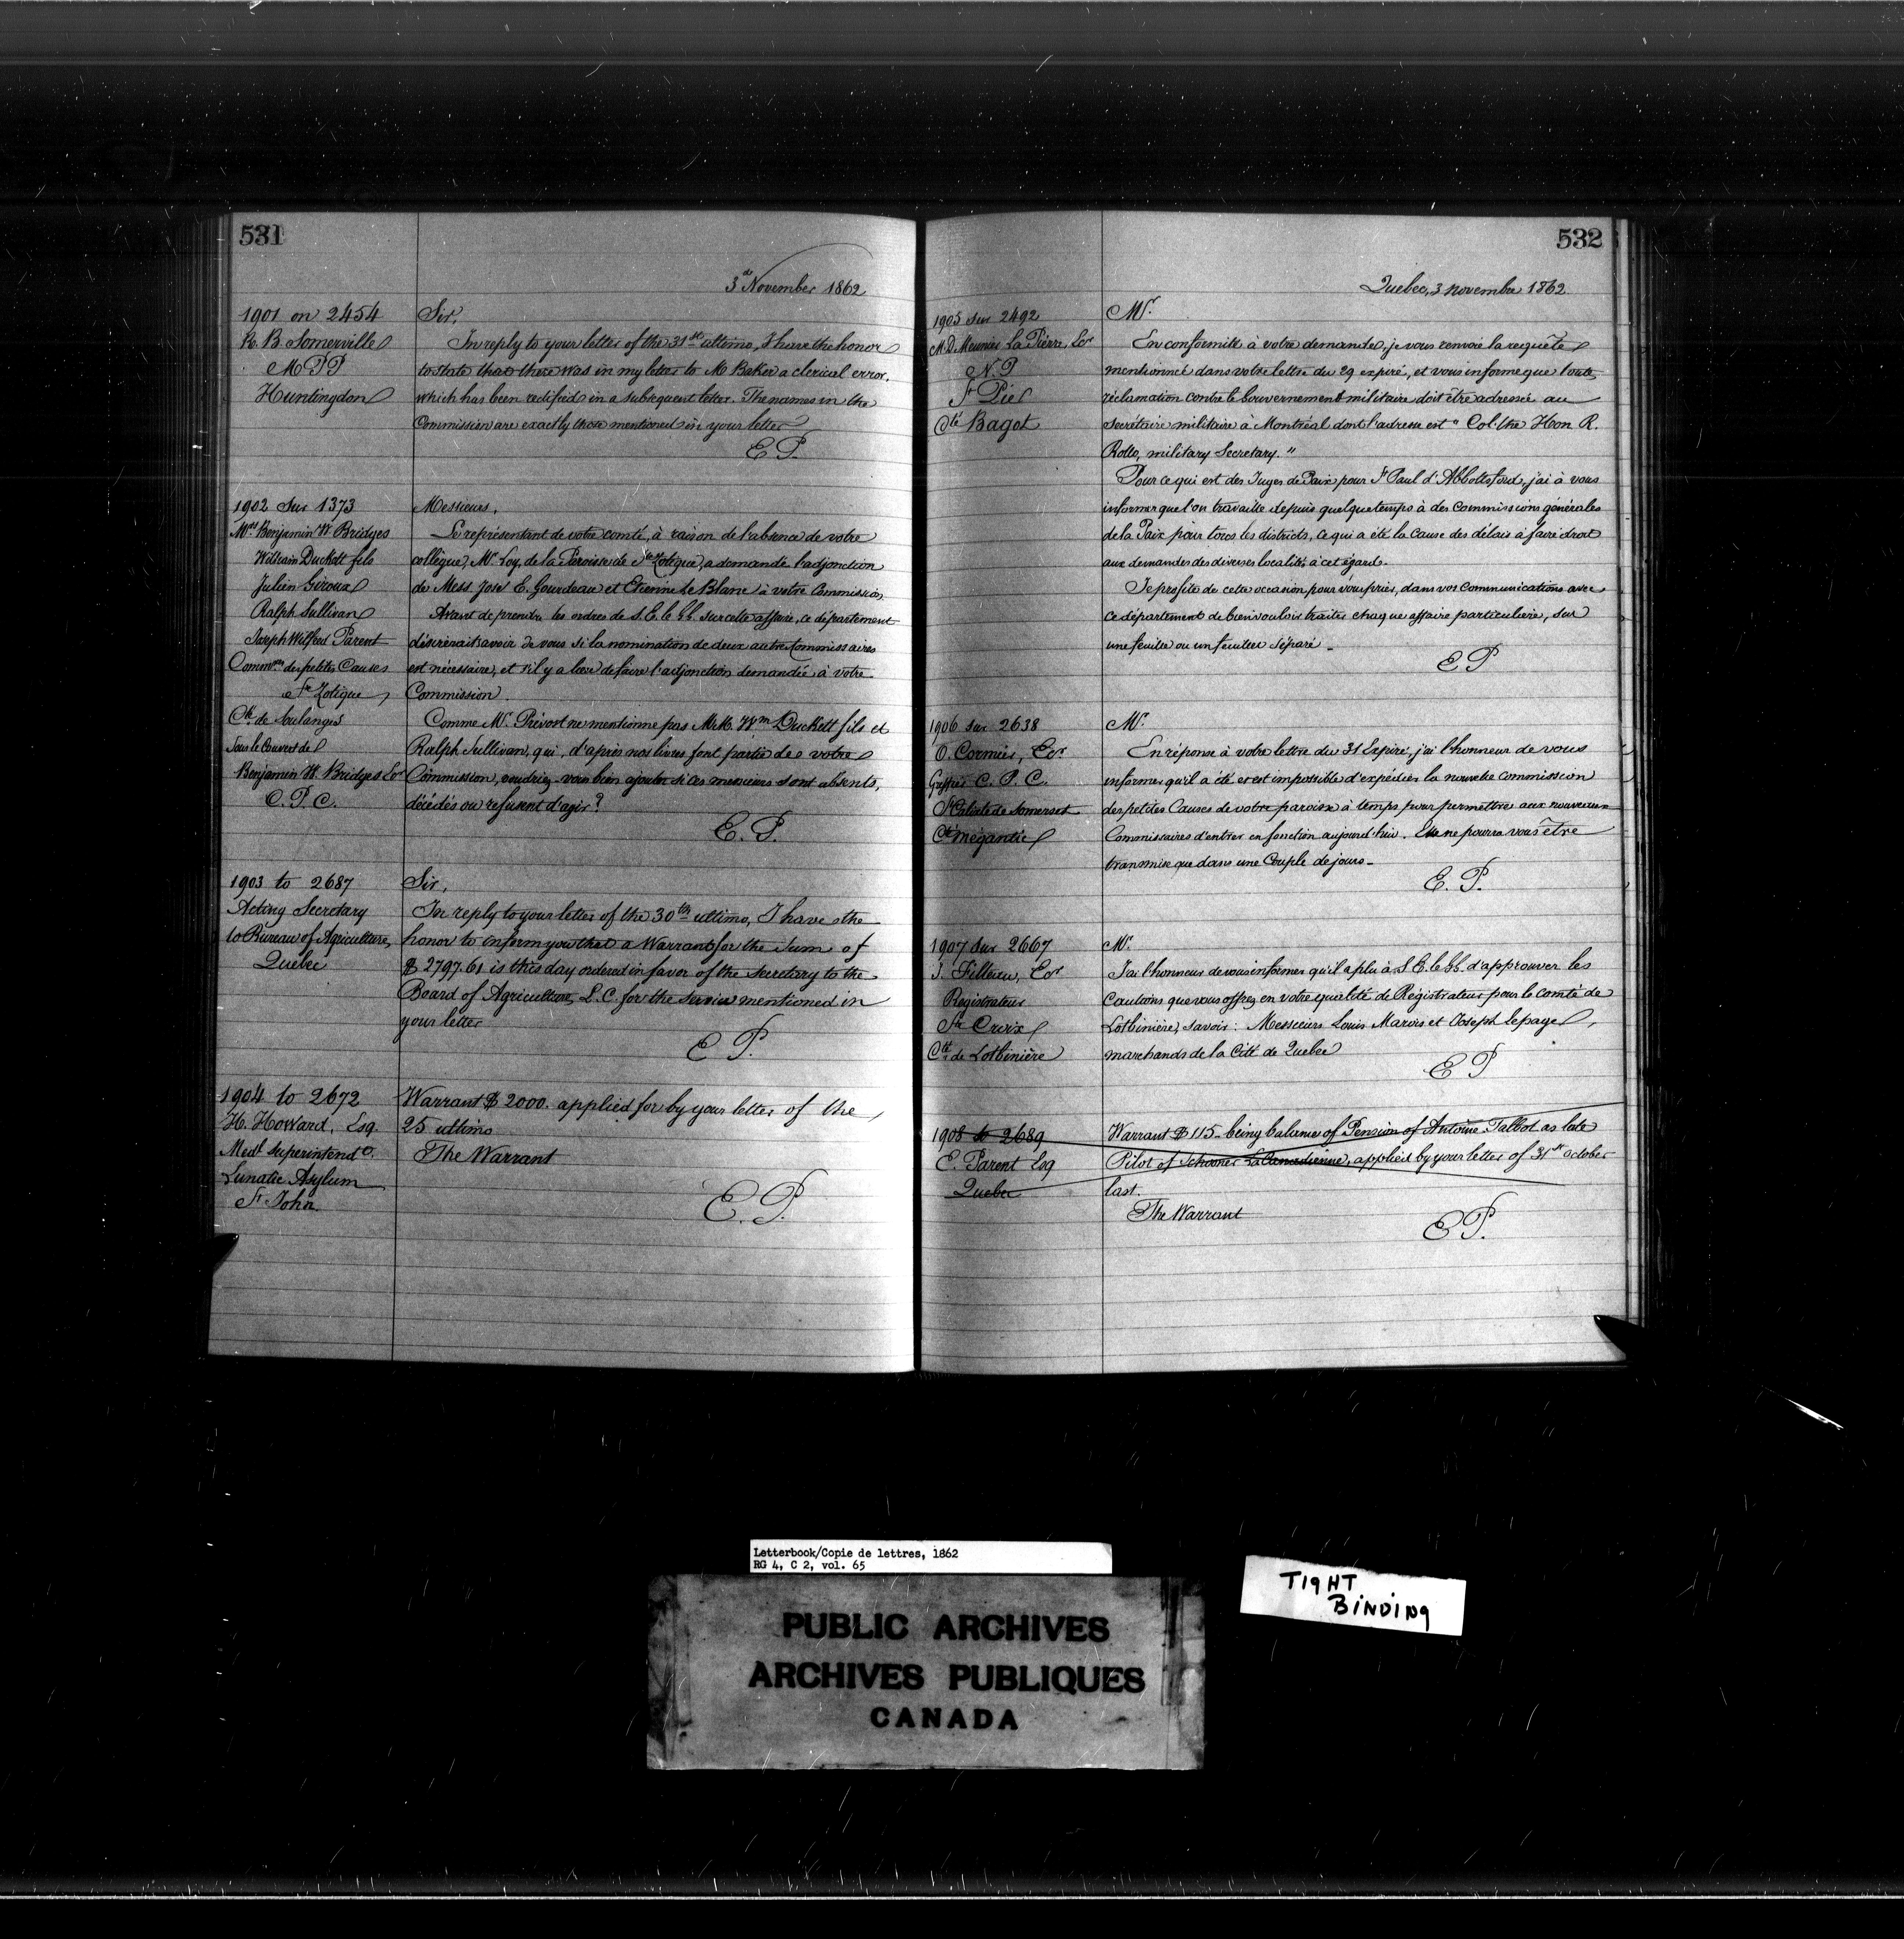 531
3d November 1862
1901 on 2454
R. B. Somerville
M P P
Huntingdon
Sir,
In reply to your letter of the 31st ultimo, I have the honor
to state that there was in my letter to Mr Baker a clerical error,
which has been rectified in a subsequent letter. The names in the
Commission are exactly those mentioned in your letter
E P.
1902 Sur 1373
Mrs Benjamin W Bridges
William Duckett fils
Julien Giroux
Ralph Sullivan
Joseph Wilfred Parent
Commres des petites Causes
St Zotique,
Cté de Soulanges
Sous le Couvert de
Benjamin W. Bridges Ecr
C. P. C.
Messieurs,
Le représentant de votre comté, à raison de l'absence de votre
collègue, Mr Loy, de la Paroisse de St Zotique, a demandé l'adjonction
de Mess José E. Gourdeau et Etienne Le Blanc à votre Commission
Avant de prendre les ordres de S. E. le G. G. sur cette affaire, ce département
désirerait savoir de vous si la nomination de deux autres Commissaires
est nécessaire, et s'il y a lieu de faire l'adjonction demandée à votre
Commission.
Comme Mr. Prévost ne mentionne pas M.M. Wm Duckett fils et
Ralph Sullivan, qui, d'après nos livres font partie de votre
Commission, voudriez-vous bien ajouter si ces messieurs sont absents,
décédés ou refusent d'agir?
E. P.
1903 to 2687
Acting Secretary
to Bureau of Agriculture,
Quebec
Sir,
In reply to your letter of the 30th ultimo, I have the
honor to inform you that a Warrant for the Sum of
$ 2797.61 is this day ordered in favor of the Secretary to the
Board of Agriculture, L. C. for the service mentioned in
your letter
E P.
1904 to 2672
H. Howard, Esq.
Medl Superintendt
Lunatic Asylum
St John.
Warrant $ 2000. applied for by your letter of the
25 ultimo
The Warrant
E. P.
532
Quebec, 3 novembre 1862
1905 Sur 2492
M. D. Meunier La Pierre, Ecr
N. P
St Pie
Cté Bagot
Mr.
En conformité à votre demande, je vous renvoie la requête
mentionnée dans votre lettre du 29 expiré, et vous informe que toute
réclamation contre le Gouvernement militaire doit être adressée au
Secrétaire militaire à Montréal dont l'adresse est " Col. the Hon R.
Rollo, military Secretary. "
Pour ce qui est des Juges de Paix pour St Paul d'Abbottsford, j'ai à vous
informer que l'on travaille depuis quelque temps à des commissions générales
de la Paix pour tous les districts, ce qui a été la cause des délais à faire droit
aux demandes des diverses localités à cet égard.
Je profite de cette occasion pour vous prier, dans vos communications avec
ce département de bien vouloir traiter chaque affaire particulière, sur
une feuille ou un feuillet séparé.
E P
1906 Sur 2638
O. Cormier, Ecr
Greffier C. P. C.
St Calixte de Somerset
Cté Mégantic
Mr.
En réponse à votre lettre du 31 Expiré, j'ai l'honneur de vous
informer qu'il a été et est impossible d'expédier la nouvelle commission
des petites Causes de votre paroisse à temps pour permettre aux nouveaux
Commissaires d'entrer en fonction aujourd'hui. Elle ne pourra vous être
transmise que dans une Couple de jours.
E. P.
1907 Sur 2667
J. Filteau, Ecr
Registrateur
Ste Croix
Cté de Lotbinière
Mr.
J'ai l'honneur de vous informer qu'il a plu à S E. le G. G. d'approuver les
Cautions que vous offrez en votre qualité de Régistrateur pour le comté de
Lotbinière, savoir: Messieurs Louis Marois et Joseph Lepage,
marchands de la Cité de Québec
E P
1908 to 2689
E. Parent Esq
Quebec
Warrant $ 115. being balance of Pension of Antoine Talbot as late
Pilot of Schooner La Canadienne, applied by your letter of 31st October
last.
The Warrant
E P.
Letterbook/Copie de lettres, 1862
RG 4, C 2, vol. 65
TIGHT
BINDING
PUBLIC ARCHIVES
ARCHIVES PUBLIQUES
CANADA